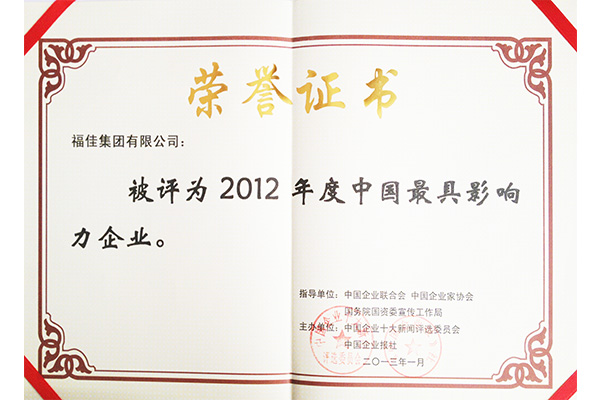 荣誉证书
福佳集团有限公司：
被评为 2012 年度中国最具影响
力企业。
指导单位：中国企业联合会 中国企业家协会
国务院国资委宣传工作局
主办单位：中国企业十大新闻评选委员会
中国企业报社
二〇一三年一月